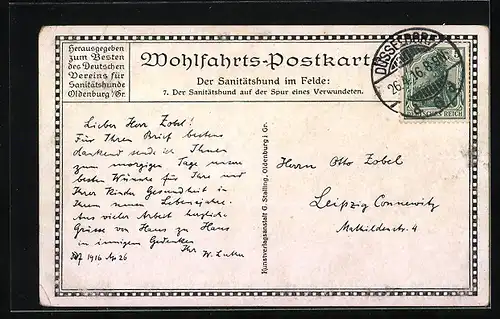 Herausgegeben
zum Besten
des Deutschen
Vereins für
Sanitätshunde
Oldenburg i/Gr.
Wohlfahrts-Postkarte
Der Sanitätshund im Felde:
7. Der Sanitätshund auf der Spur eines Verwundeten.
DÜSSELDORF
Lieber Herr Zobel!
Für Ihren Brief bestens
dankend sende ich Ihnen
zum morgigen Tage meine
besten Wünsche für Ihre und
Ihrer Kinder Gesundheit in
Ihrem neuen Lebensjahre.
Aus vieler Arbeit herzliche
Grüsse von Haus zu Haus
in innigem Gedenken
Ihr W.
1916 26
Kunstverlagsanstalt G. Stalling, Oldenburg i. Gr.
Herrn Otto Zobel
Leipzig Connewitz
Mathildenstr. 4